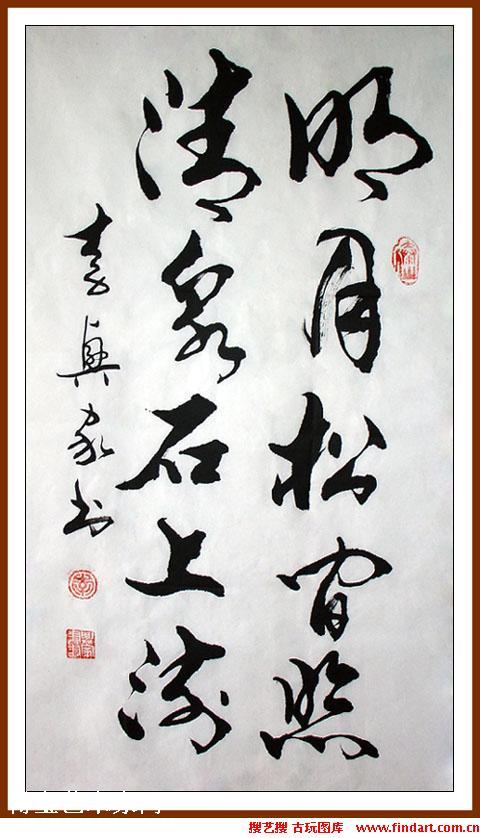 明月松間照
清泉石上流
家书
搜艺搜 古玩图库 www.findart.com.cn